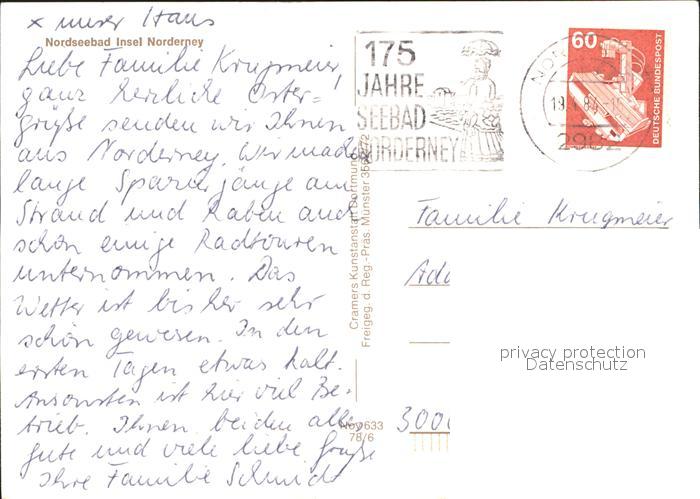 x unser Haus
Nordseebad Insel Norderney
Liebe Familie Krugmeier,
ganz herzliche Oster=
grüße senden wir Ihnen
aus Norderney. Wir machen
lange Spaziergänge am
Strand und haben auch
schön einige Radtouren
unternommen. Das
Wetter ist bisher sehr
schön gewesen. In den
ersten Tagen etwas kalt.
Ansonsten ist hier viel Be-
trieb. Ihnen beiden alles
gute und viele liebe Grüße
Ihre Familie Schmidt
Cramers Kunstanstalt Dortmund
Freigeg. d. Reg.-Präs. Münster
Noy633
78/6
175
JAHRE
SEEBAD
NORDERNEY
2982
60
DEUTSCHE BUNDESPOST
Familie Krugmeier
3000
privacy protection
Datenschutz